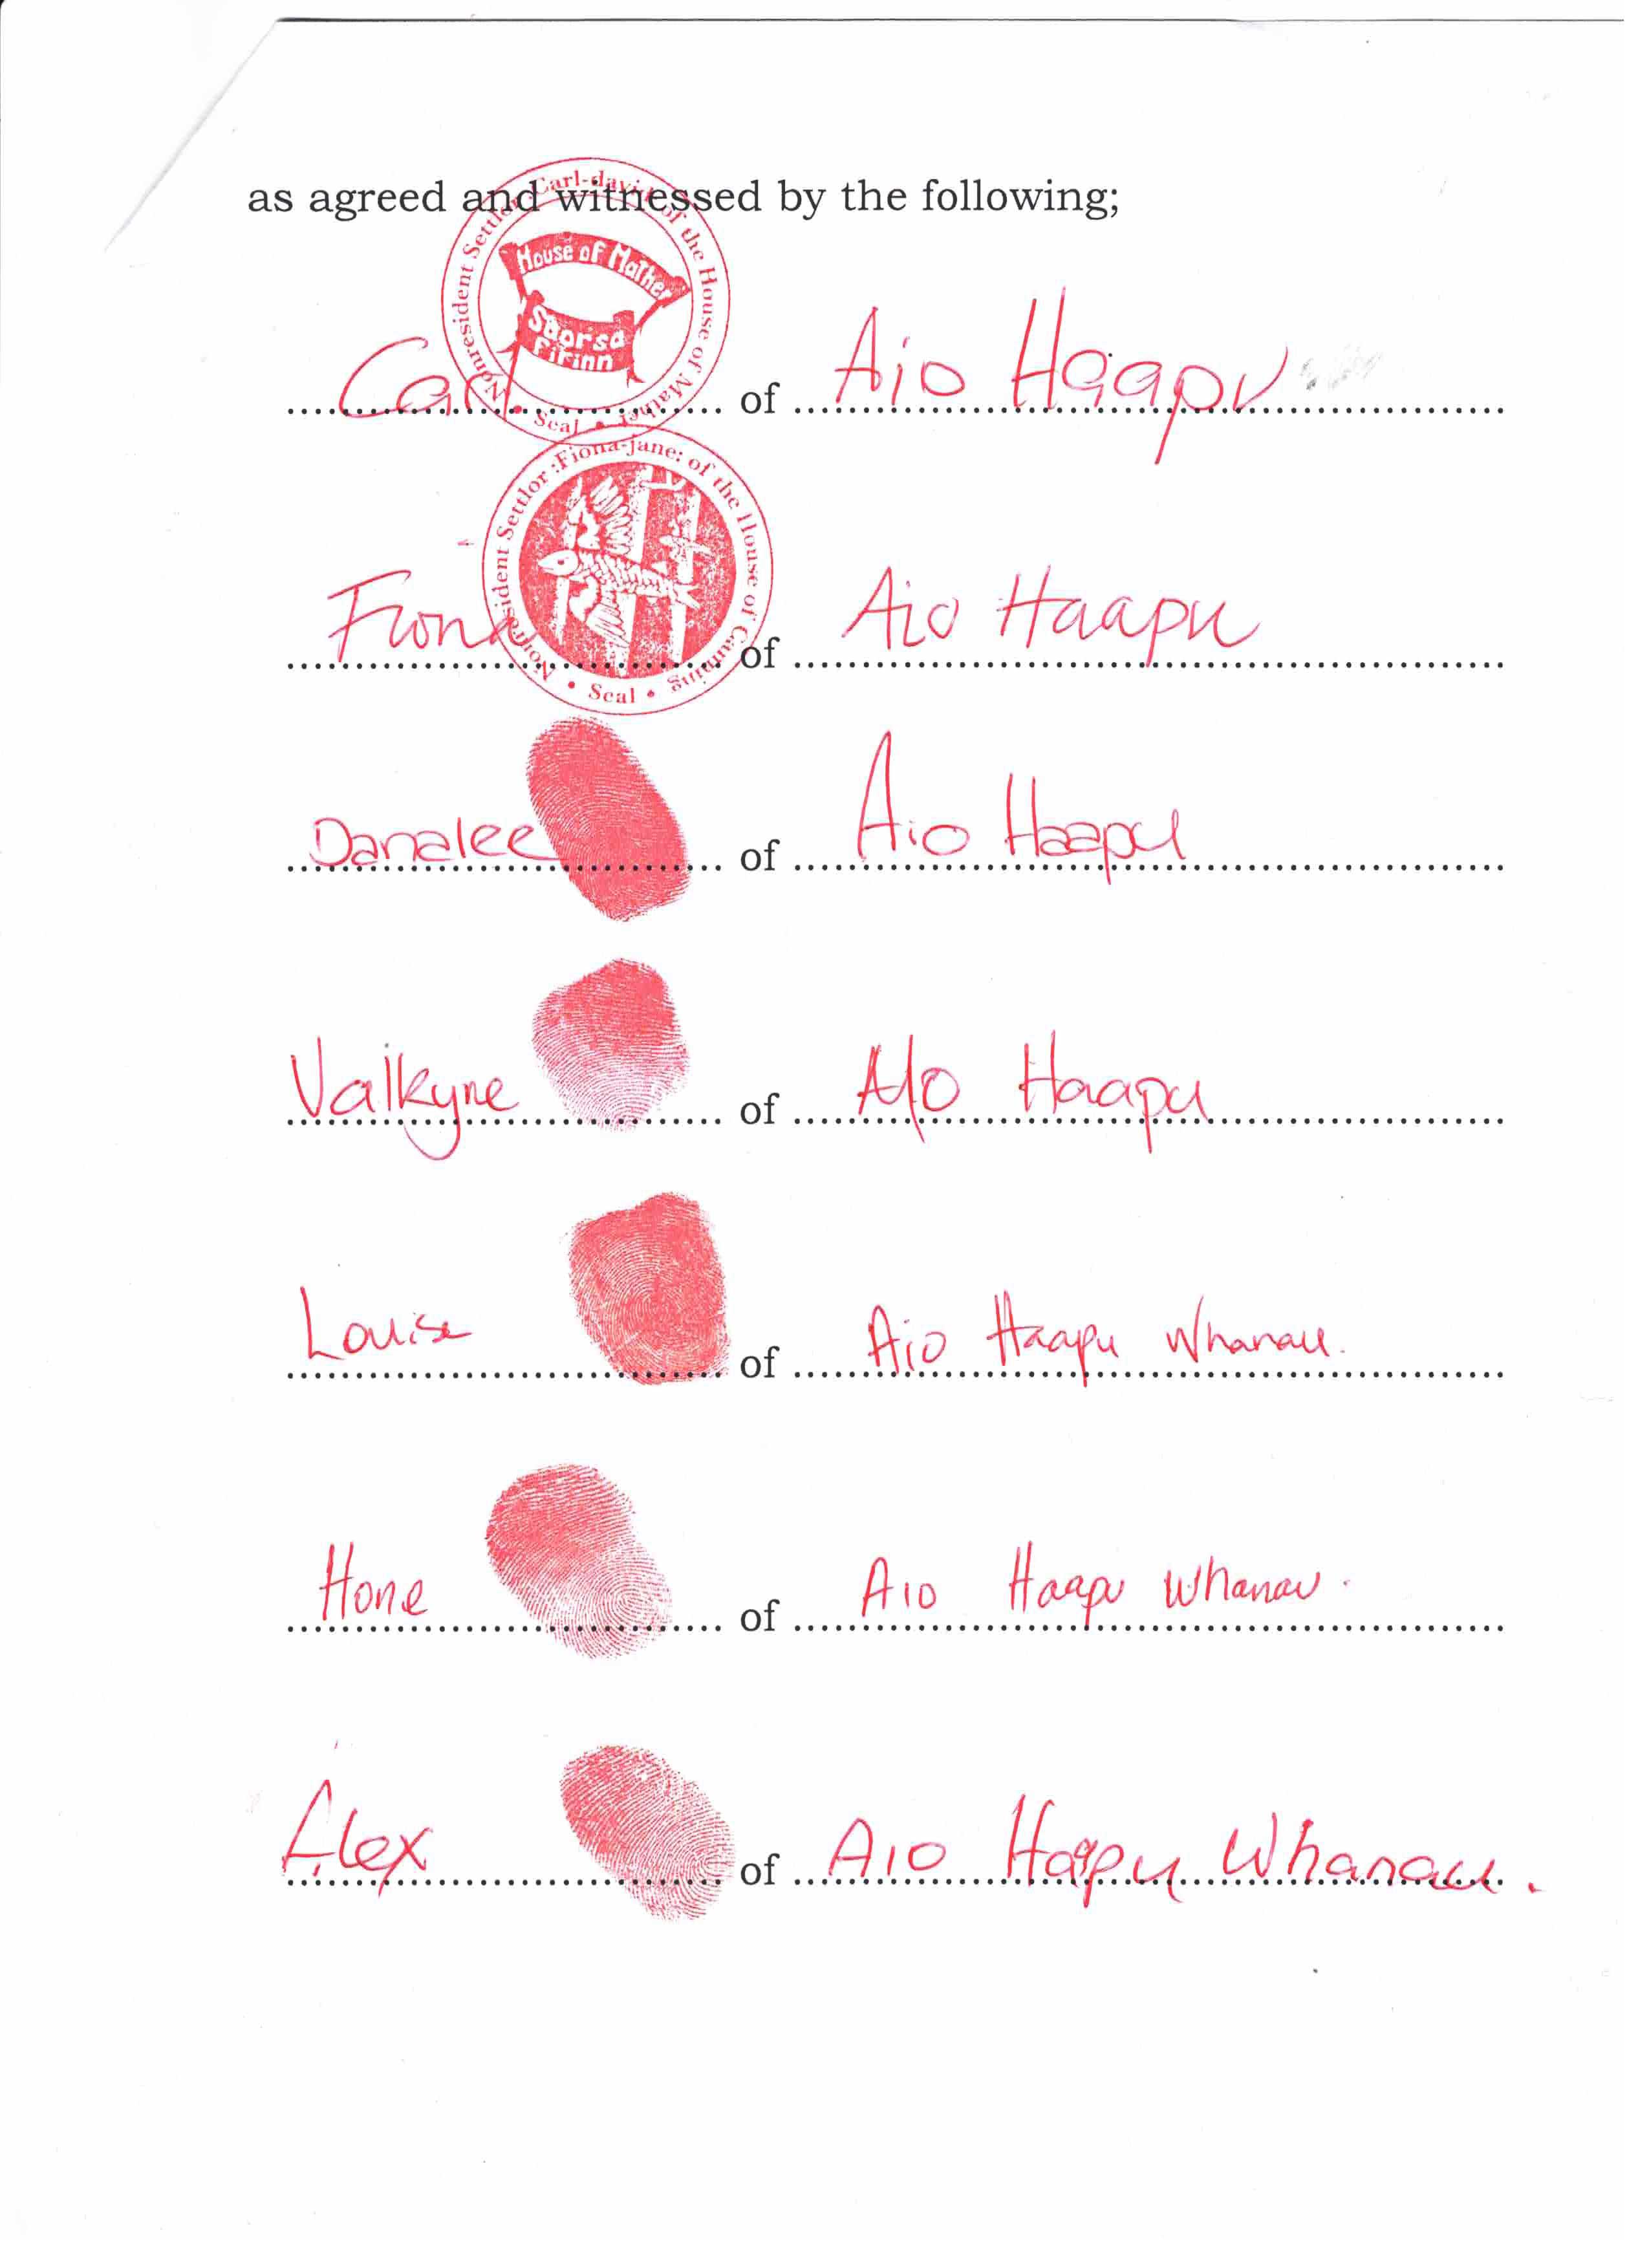 as agreed and witnessed by the following;
Nonresident Settlor :Carl-david: of the House of Mather
• Seal •
House of Mather
Saorsa
Firinn
Carl of Aio Haapu
Nonresident Settlor :Fiona-jane: of the House of Cumming
• Seal •
Fiona of Aio Haapu
Danalee of Aio Haapu
Valkyrie of Aio Haapu
Louise of Aio Haapu Whanau.
Hone of Aio Haapu Whanau.
Alex of Aio Haapu Whanau.